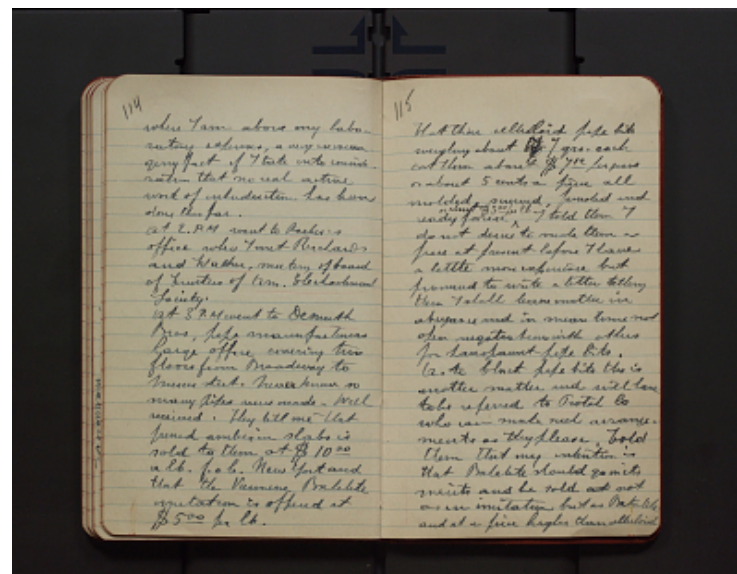 114
where I am above my labo-
ratory expenses, a very encoura-
ging fact if I take into conside-
ration that no real active
work of introduction has been
done thus far.
at 2. P.M went to Parker's
office where I met Richards
and Walker, meeting of board
of Trustees of Am. Electrochemical
Society.
at 3 P.M went to Demuth
Bros, pipe manufacturers
Large office, covering two
floors from Broadway to
Mercer street. Never knew so
many pipes were made. Well
received. They tell me that
fused ambroin slabs is
sold to them at $10.00
a lb. f.o.b. New York and
that the Viennese Bakelite
imitation is offered at
$5.00 per lb.
115
that their celluloid pipe bits
weighing about 7 grs. each
cost them about $7.00 per gross
or about 5 cents a piece all
molded, finished and
ready for use. I told them I
do not desire to made them a
price at present before I have
a little more experience but
promised to write a letter telling
them I shall leave matter in
abeyance and in mean time not
open negotiations with others
for transparent pipe bits.
As to black pipe bits this is
another matter and will have
to be referred to Protal Co
who can make such arrange-
ments as they please. told
them that my intention is
that Bakelite should go on its
merits and be sold not
as an imitation but as Bakelite
and at a price higher than celluloid